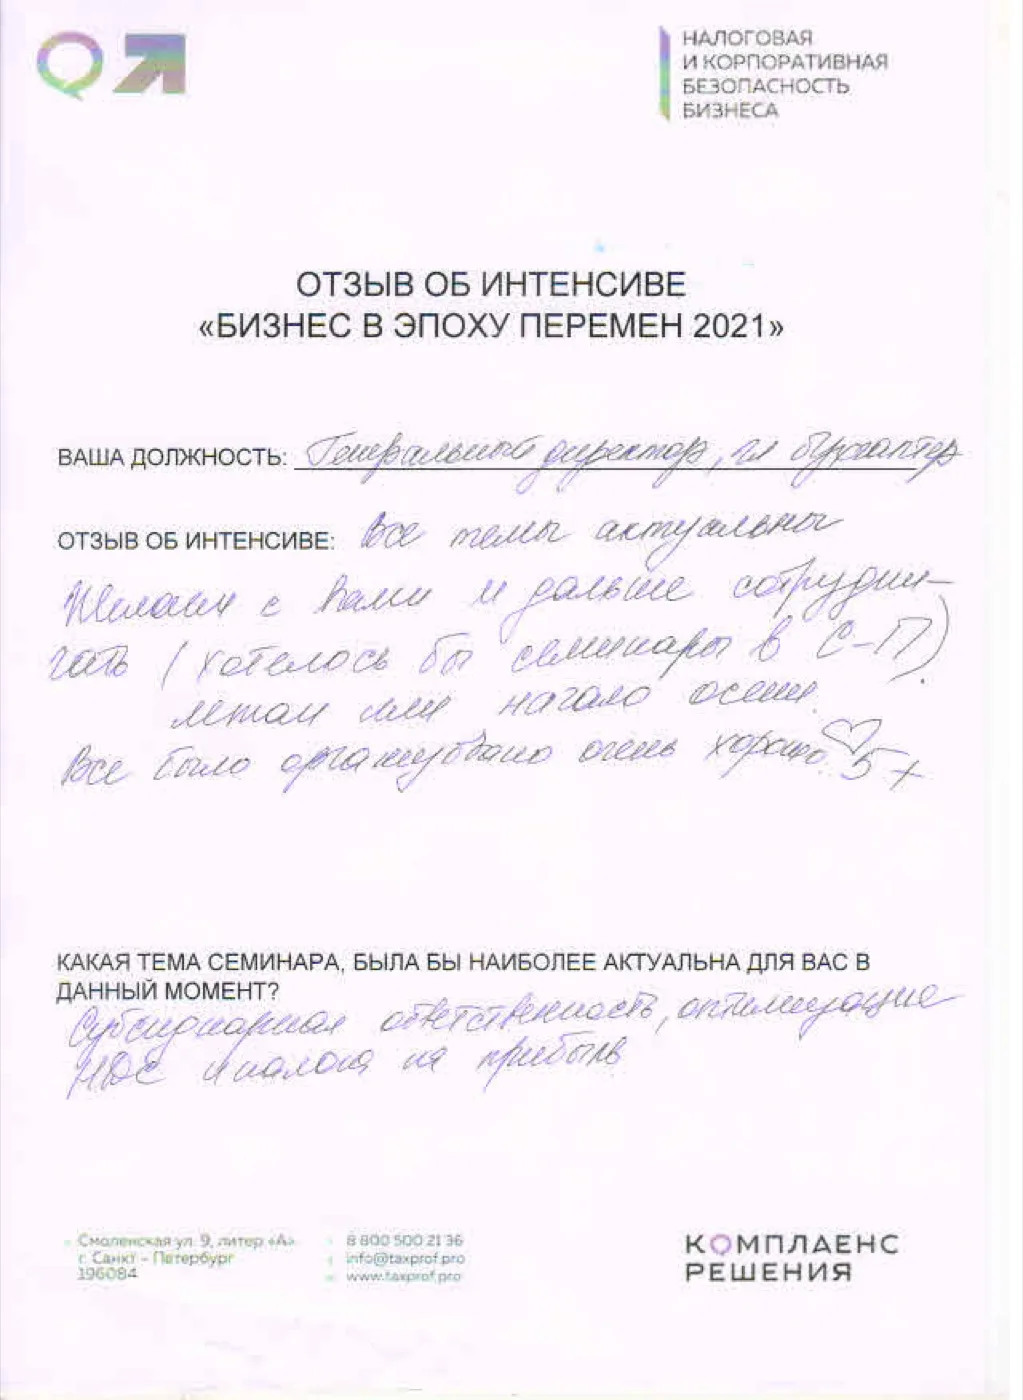 НАЛОГОВАЯ
И КОРПОРАТИВНАЯ
БЕЗОПАСНОСТЬ
БИЗНЕСА
ОТЗЫВ ОБ ИНТЕНСИВЕ
«БИЗНЕС В ЭПОХУ ПЕРЕМЕН 2021»
ВАША ДОЛЖНОСТЬ: Генеральный директор, гл бухгалтер
ОТЗЫВ ОБ ИНТЕНСИВЕ: Все темы актуальны
Желаем с Вами и дальше сотрудни-
чать (хотелось бы семинары в С-П)
летом или начало осени.
Все было организовано очень хорошо. 5+
КАКАЯ ТЕМА СЕМИНАРА, БЫЛА БЫ НАИБОЛЕЕ АКТУАЛЬНА ДЛЯ ВАС В
ДАННЫЙ МОМЕНТ?
Субсидиарная ответственность, оптимизация
НДС и налога на прибыль
Смоленская ул. 9, литер «А»
г. Санкт – Петербург
196084
8 800 500 21 36
info@taxprof.pro
www.taxprof.pro
КОМПЛАЕНС
РЕШЕНИЯ